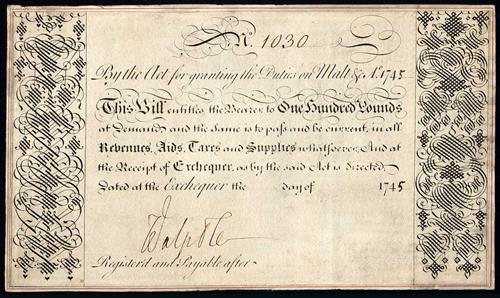 No. 1030
By the Act for granting the Duties on Malt &c. Ao. 1745
This Bill entitles the Bearer to One Hundred Pounds
at Demand, and the same is to pass and be current, in all
Revenues, Aids, Taxes and Supplies whatsoever, And at
the Receipt of Exchequer, as by the said Act is directed,
Dated at the Exchequer the day of 1745
Walpole
Registerd and Payable after